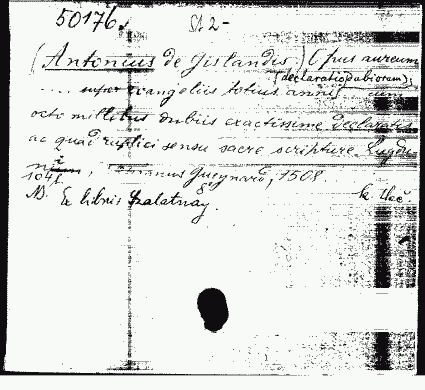 50176. St. 2-
(Antonius de Gislandis) Opus aureum
(declaratio dubiorum)
.... super evangeliis totius anni cum
octo millibus dubiis exactissime declaratis
ac quadruplici sensu sacre scripture. Lugdu-
ni, Gueynard, 1508.
104 f.
NB. Ex libris Palatnay